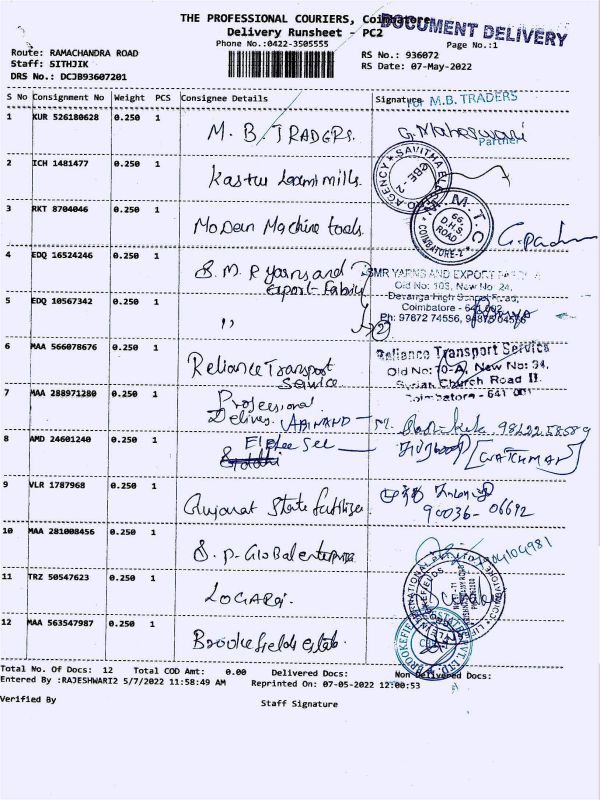 THE PROFESSIONAL COURIERS, Coimbatore
DOCUMENT DELIVERY
Delivery Runsheet - PC2
Phone No.:0422-3505555
Page No.:1
Route: RAMACHANDRA ROAD
RS No.: 936072
Staff: SITHJIK
RS Date: 07-May-2022
DRS No.: DCJB93607201
S No Consignment No Weight PCS Consignee Details Signature
for M.B. TRADERS
1 KUR 526180628 0.250 1 M. B. TRADERS. G. Maheswari
Partner
2 ICH 1481477 0.250 1 Kastur Laxmi mills.
SAVITHA AGENCY
3 RKT 8704046 0.250 1 Modern Machine tools.
M.T.C 66, D.H.S ROAD COIMBATORE-2
4 EDQ 16524246 0.250 1 S. M. R Yarns and
export Fabric
SMR YARNS AND EXPORT
Old No: 103, New No 24,
Devanga High School Road,
Coimbatore - 641 002
Ph: 97872 74556, 94875 04556
5 EDQ 10567342 0.250 1 ,, 2
6 MAA 566078676 0.250 1 Reliance Transport
Service
Reliance Transport Service
Old No: 10-A, New No: 34,
Syrian Church Road II.
Coimbatore - 641 001
7 MAA 288971280 0.250 1 Professional
Delives. ABINAND M. 98422 58589
8 AMD 24601240 0.250 1 [WATCHMAN]
9 VLR 1787968 0.250 1 Gujarat State fertilizer
90036-06692
10 MAA 281008456 0.250 1 S. P. Global enterprises
11 TRZ 50547623 0.250 1 LOGAR
12 MAA 563547987 0.250 1 Brookefields estate.
Total No. Of Docs: 12 Total COD Amt: 0.00 Delivered Docs: Non Delivered Docs:
Entered By :RAJESHWARI2 5/7/2022 11:58:49 AM Reprinted On: 07-05-2022 12:00:53
Verified By
Staff Signature